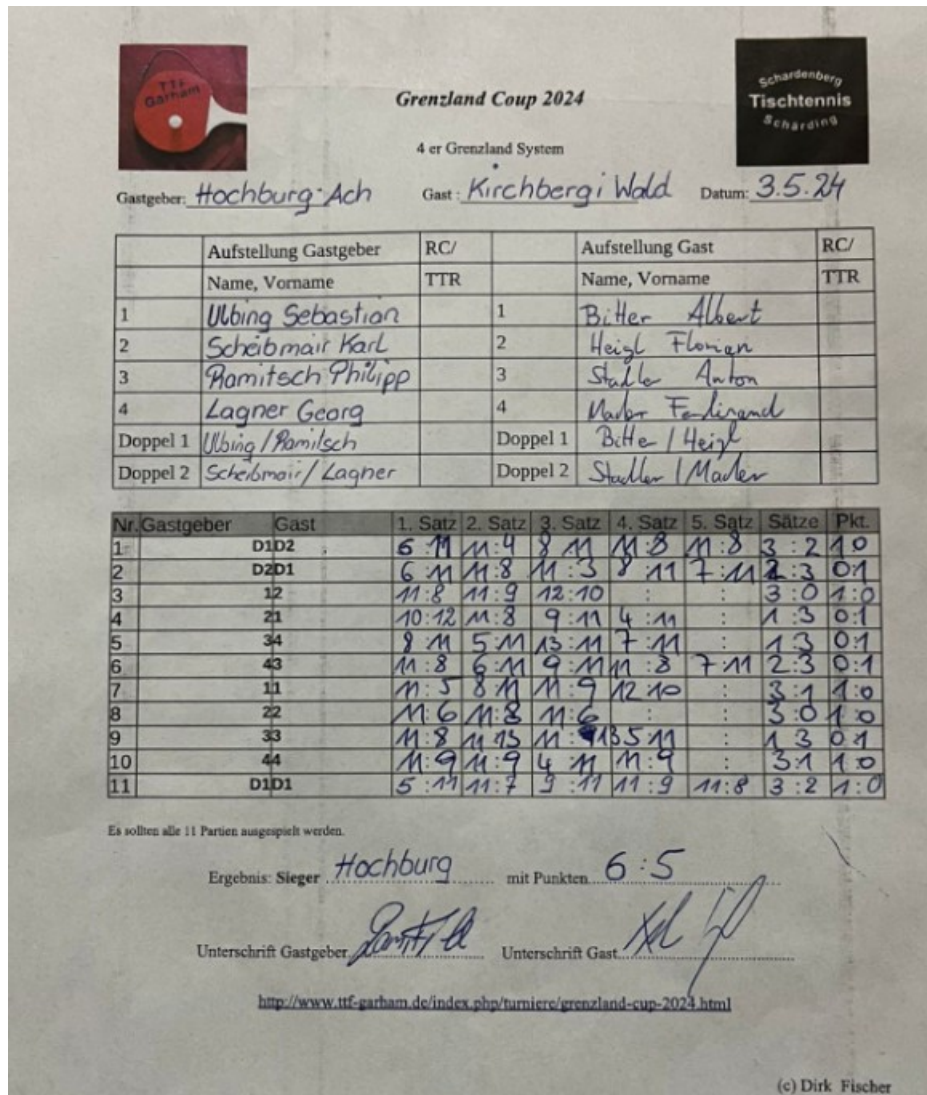 TTF
Garham
Schardenberg
Tischtennis
Schärding
Grenzland Coup 2024
4 er Grenzland System
Gastgeber: Hochburg-Ach Gast: Kirchberg i Wald Datum: 3.5.24
Aufstellung Gastgeber RC/ Aufstellung Gast RC/
Name, Vorname TTR Name, Vorname TTR
1 Ulbing Sebastian 1 Bitter Albert
2 Scheibmair Karl 2 Heigl Florian
3 Ramitsch Philipp 3 Stadler Anton
4 Lagner Georg 4 Mader Ferdinand
Doppel 1 Ulbing / Ramitsch Doppel 1 Bitter / Heigl
Doppel 2 Scheibmair / Lagner Doppel 2 Stadler / Mader
Nr. Gastgeber Gast 1. Satz 2. Satz 3. Satz 4. Satz 5. Satz Sätze Pkt.
1 D1D2 6:11 11:4 8 11 11:8 11:8 3:2 1 0
2 D2D1 6:11 11:8 11:3 8 11 7:11 2:3 0:1
3 12 11:8 11:9 12:10 : : 3:0 1:0
4 21 10:12 11:8 9:11 4:11 : 1:3 0:1
5 34 8 11 5:11 13:11 7:11 : 1 3 0:1
6 43 11:8 6:11 9:11 11:8 7:11 2:3 0:1
7 11 11:5 8 11 11:9 12 10 : 3:1 1:0
8 22 11:6 11:8 11:6 : : 3:0 1:0
9 33 11:8 11 13 11: 13 5 11 : 1 3 0 1
10 44 11:9 11:9 4 11 11:9 : 3 1 1 0
11 D1D1 5:11 11:7 9:11 11:9 11:8 3:2 1:0
Es sollten alle 11 Partien ausgespielt werden.
Ergebnis: Sieger Hochburg mit Punkten 6:5
Unterschrift Gastgeber Unterschrift Gast
http://www.ttf-garham.de/index.php/turniere/grenzland-cup-2024.html
(c) Dirk Fischer